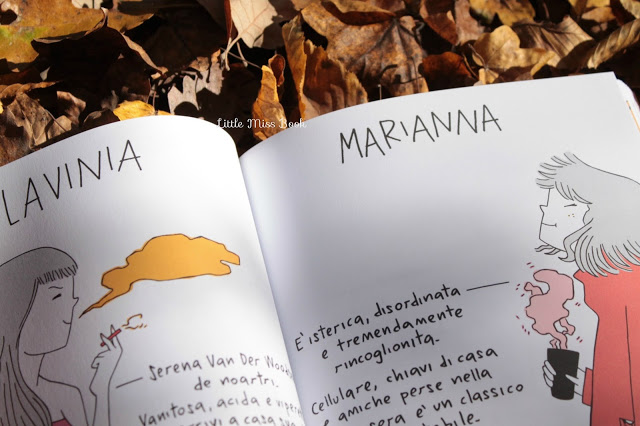 Little Miss Book
LAVINIA
SERENA VAN DER
DE NOARTRI.
VANITOSA, ACIDA E
A CASA
MARIANNA
E' ISTERICA, DISORDINATA
E TREMENDAMENTE
RINCOGLIONITA.
CELLULARE, CHIAVI DI CASA
E AMICHE PERSE NELLA
SERA E' UN CLASSICO